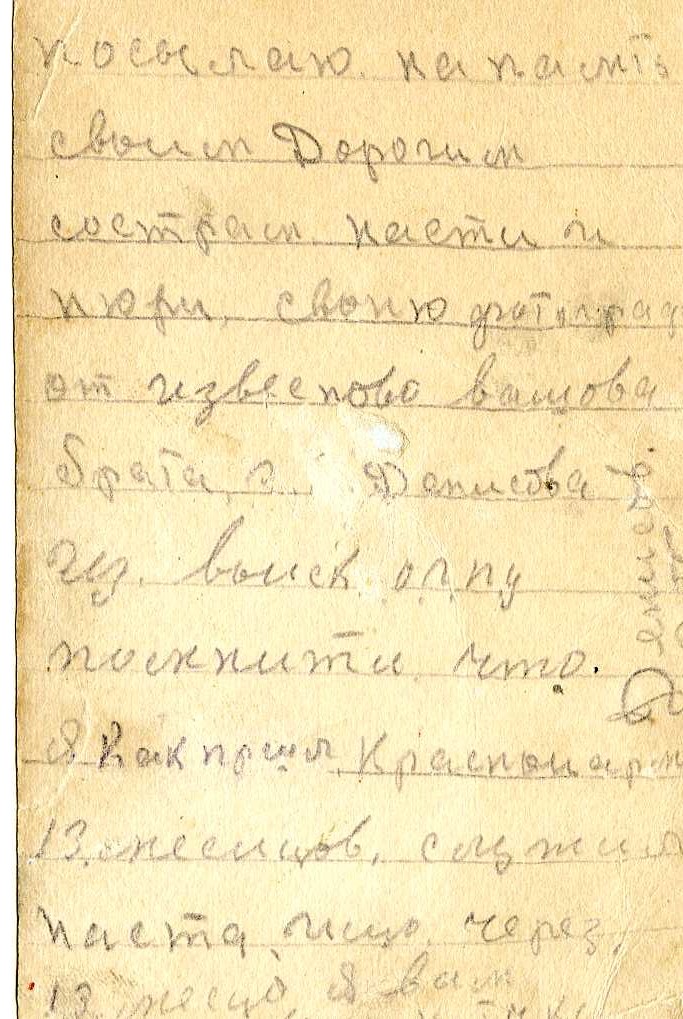 посылаю на памить
своим Дорогим
сострам насти и
нюри, свою фотограф
от известново вашова
брата, Денисова
из войск ОГПУ
помните что
я как пршл Красноарм
13 месицов, служил
наста ищо через
13 месцо я вам
Денисов